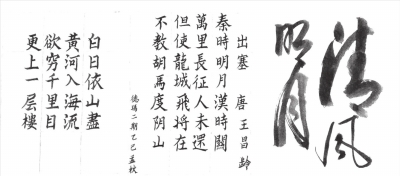 清風
明月
出塞 唐 王昌齡
秦時明月漢時關
萬里長征人未還
但使龍城飛將在
不教胡馬度阴山
德瑪二期乙巳孟秋
白日依山盡
黄河入海流
欲穷千里目
更上一层樓